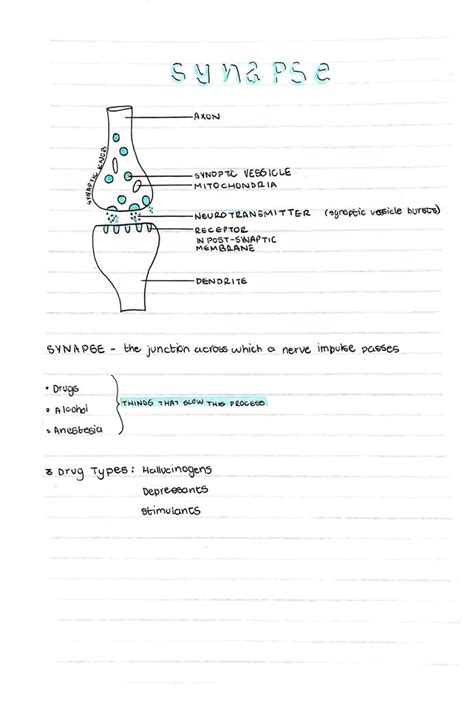 Synapse
AXON
SYNAPTIC KNOB
SYNOPTIC VESSICLE
MITOCHONDRIA
NEUROTRANSMITTER (synoptic vessicle bursts)
RECEPTOR
IN POST-SINAPTIC
MEMBRANE
DENDRITE
SYNAPSE - the junction across which a nerve impulse passes
• Drugs
• Alcohol
• Anestesia
THINGS THAT SLOW THIS PROCESS
3 Drug Types: Hallucinogens
Depressants
Stimulants